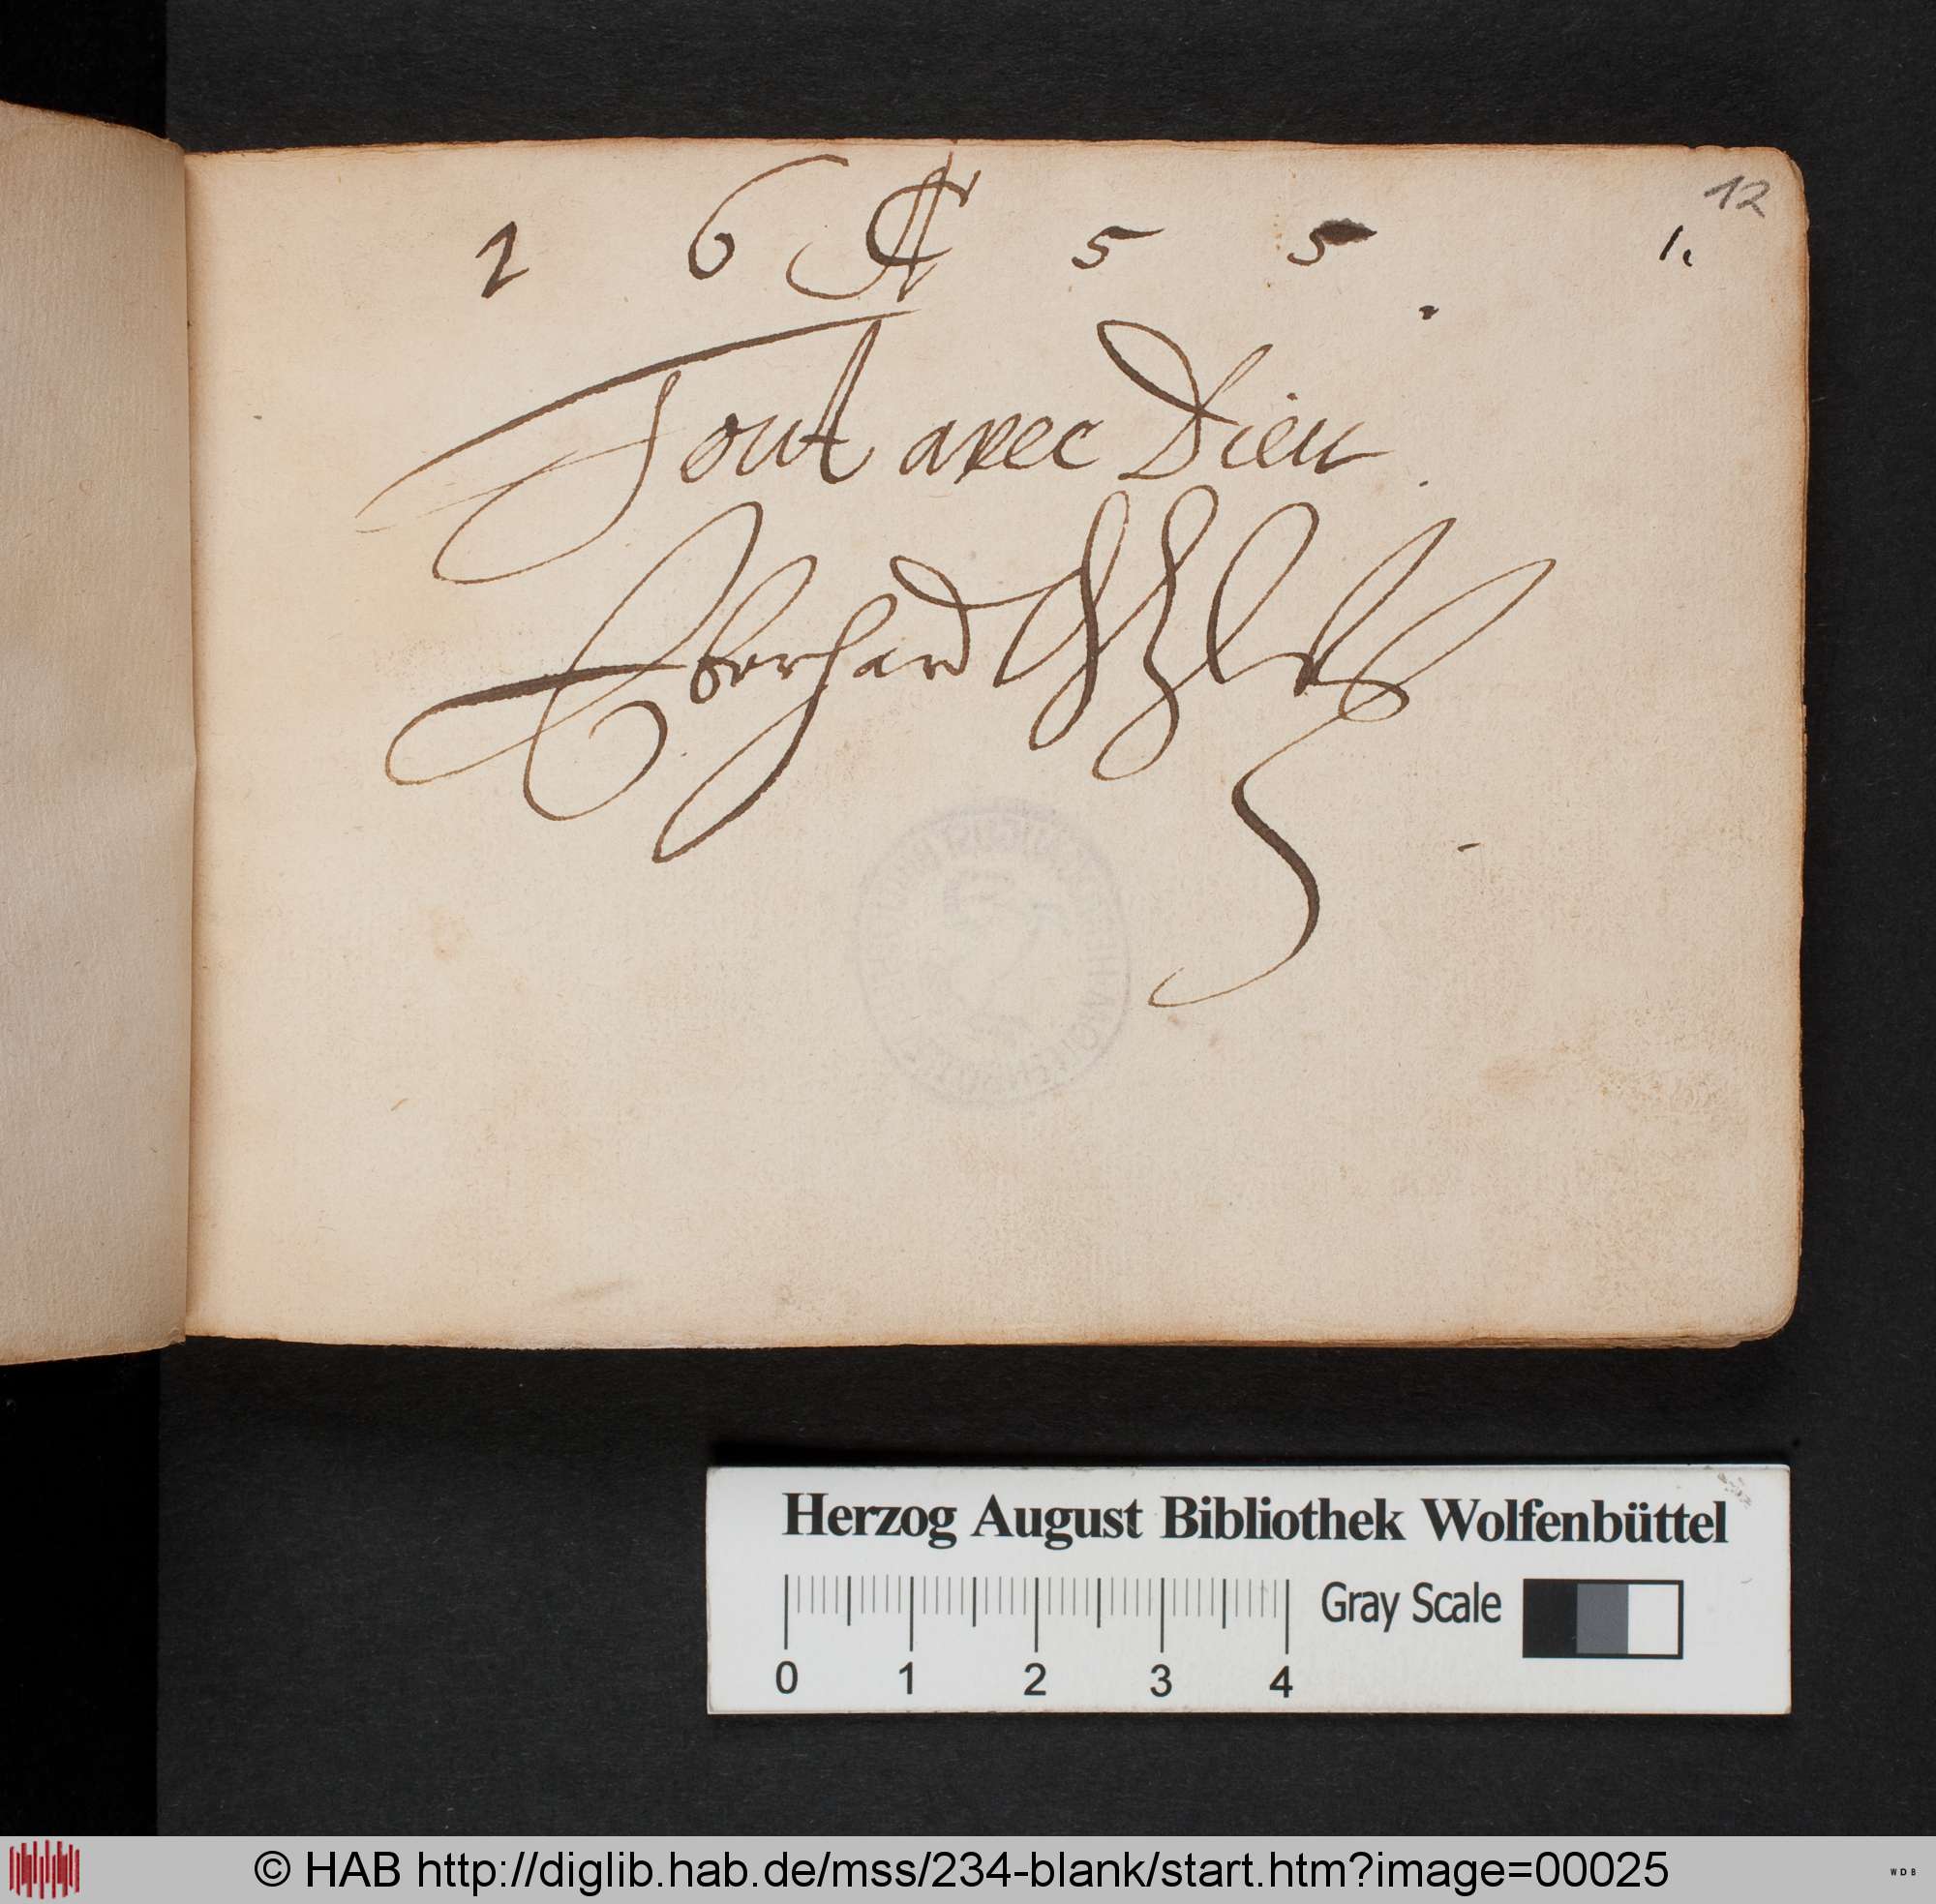 12
1 6 5 5 1.
Tout avec Dieu
Eberhard
Herzog August Bibliothek Wolfenbüttel
Gray Scale
0 1 2 3 4
© HAB http://diglib.hab.de/mss/234-blank/start.htm?image=00025
WDB